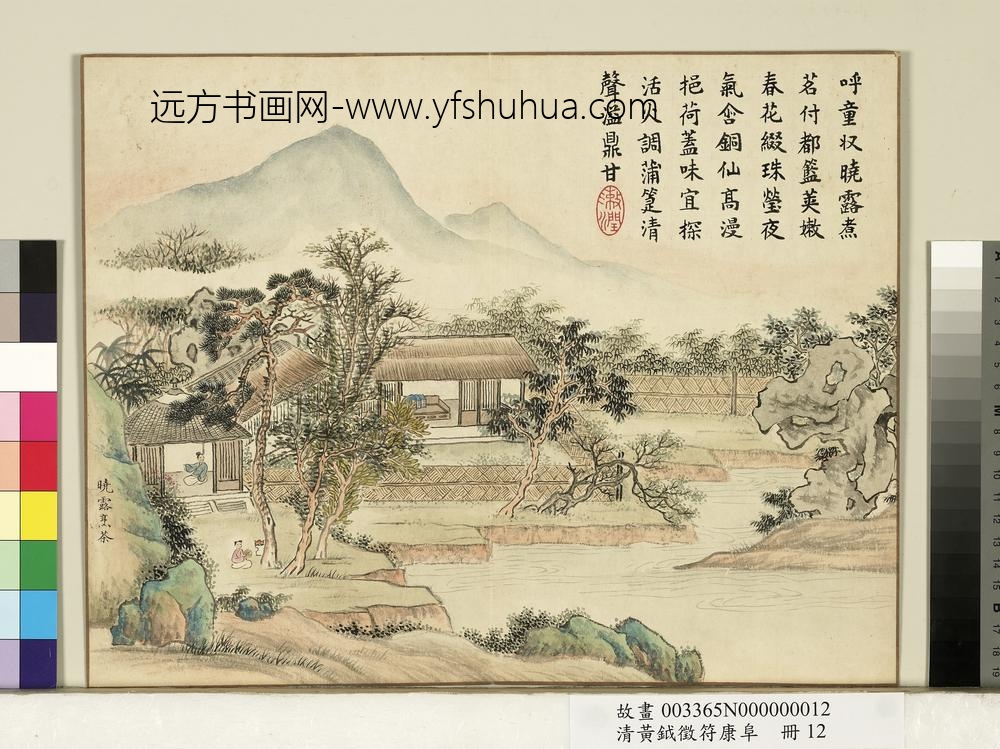 远方书画网-www.yfshuhua.com
呼童収曉露煮
茗付都籃英嫩
春花綴珠瑩夜
氣含銅仙髙漫
挹荷蓋味宜探
活火調蒲箑清
聲溫鼎甘
漱潤
曉露烹茶
故畫 003365N000000012
清黃鉞徵符康阜 冊 12